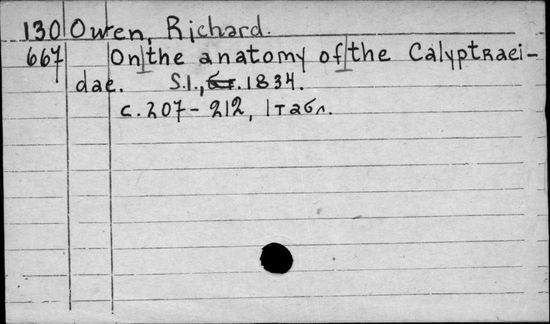 130 Owen, Richard.
667 On the anatomy of the Calyptraei-
dae. S.l., 1834.
c. 207-212, 1 табл.